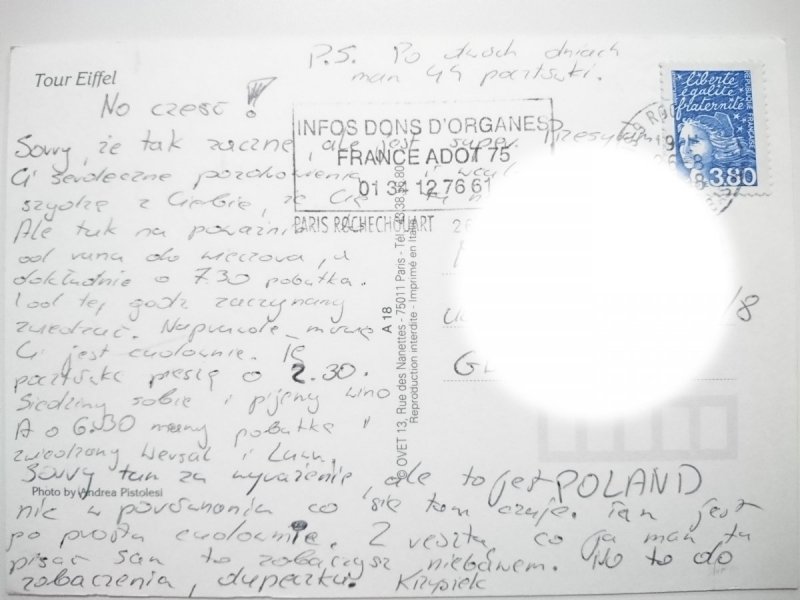 Tour Eiffel
P.S. Po dwóch dniach
mam 44 pocztówki.
No cześć!
liberté
égalité
fraternité
RÉPUBLIQUE FRANÇAISE
3,80
INFOS DONS D'ORGANES
FRANCE ADOT 75
01 34 12 76 61
PARIS ROCHECHOUART 26
Sorry, że tak zacznę, ale jest super. Przesyłam
Ci serdeczne pozdrowienia i
szydzę z Ciebie, że Cię tu
Ale tak na poważnie
od rana do wieczora, a
dokładnie o 7.30 pobutka.
I od tej godz zaczynamy
zwiedzać. Naprawdę mówię
Ci jest cudownie. Tę
pocztówkę piszę o 2.30.
Siedzimy sobie i pijemy wino
A o 6.30 mamy pobutkę i
zwiedzamy Wersal i Luwr.
Sorry tam za wyrażenie, ale to jest POLAND
nic w porównaniu co się tam czuje. Tam jest
po prostu cudownie. Z resztą co ja mam tu
pisać sam to zobaczysz niebawem. No to do
zobaczenia, dupeczku. Krzysiek
/8
GL
A 18
© OVET 13, Rue des Nanettes - 75011 Paris - Tél.
Reproduction interdite - Imprimé en Italie
Photo by Andrea Pistolesi